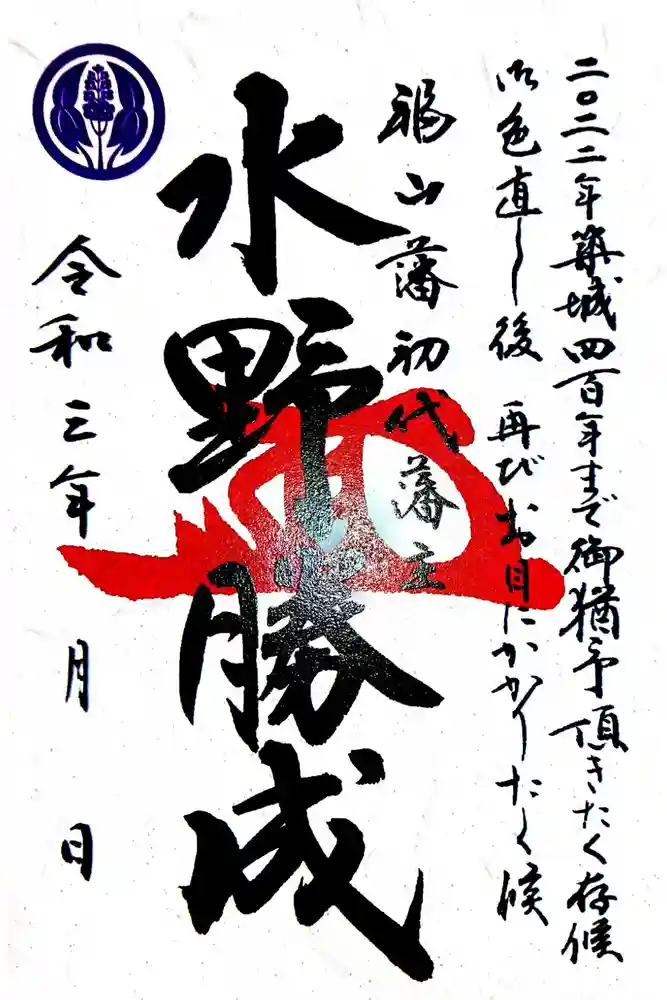 二〇二二年築城四百年まで御猶予頂きたく存候
御色直し後 再びお目にかかりたく候
福山藩初代藩主
水野勝成
令和三年 月 日